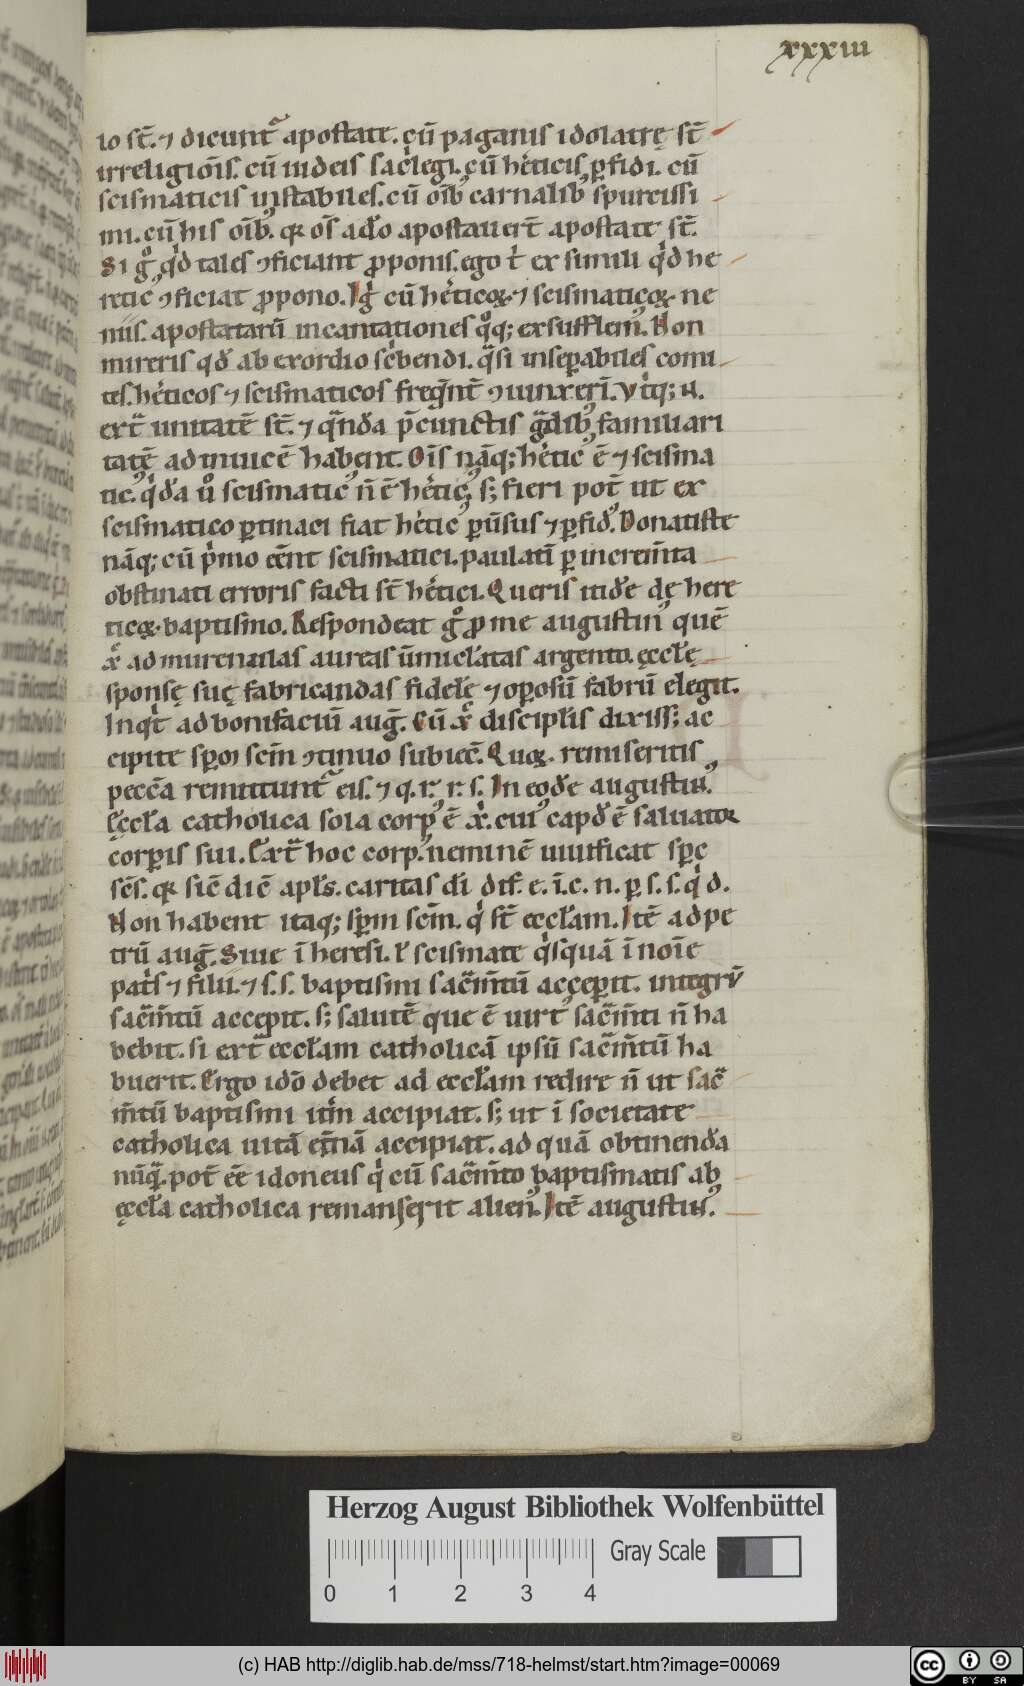 xxxiii
io st̄. ⁊ dicunt᷑ apostate. cū paganis idolatrę st̄
irreligiōis. cū iudeis sac̓legi. cū he̓ticis ꝑfidi. cū
scismaticis instabiles. cū oīb; carnalib; spurcissi
mi. cū his oīb;. qꝛ os̄ a dō apostauer̄t apostate st̄.
Si gͦ qͥd tales ꝯficiant ꝓponis. ego t̓ ex simili qͥd he
retic᷒ ꝯficiat ꝓpono. Igͥ cū he̓ticoꝝ. ⁊ scismaticoꝝ. ne
niis. apostatarū incantationes qͦq; exsufflem᷒. Non
mireris qd̓ ab exordio sc̓bendi. qͣsi insepabiles comi
tes. he̓ticos ⁊ scismaticos freqn̄t̄ ꝯiunxerī. Vtͥq; n.
extͣ unitatē st̄. ⁊ qͣnda p̄cunctis gͣdib; familiari
tatē ad inuicē habent. Oīs nāq; he̓tic᷒ ē ⁊ scisma
tic᷒. qͥda uͦ scismatic᷒ n̄ ē he̓tic᷒, s; fieri pot̄ ut ex
scismatico ꝑtinaci fiat he̓tic᷒ ꝑūsus ⁊ ꝑfid᷒. Donatiste
nāq; cū pͥmo eēnt scismatici. paulatī ꝑ increm̄ta
obstinati erroris facti st̄ he̓tici. Queris itide de here
ticoꝝ. baptismo. Respondeat gͦ ꝓ me augustin᷒ quē
xp̄c ad murenulas aureas ūmiclatas argento. ęccłę
sponsę suę fabricandas fidelē ⁊ oꝑosū fabrū elegit.
Inqͥt ad bonifaciū auḡ. Cū xp̄c discipłis dixiss; ac
cipite spm scm̄ ꝯtinuo subiec̄. Quoꝝ. remiseritis
pecc̄a remittunt᷑ eis. ⁊ q. r. r. s. In eode augustin᷒.
Ęccła catholica sola corp᷒ ē xp̄i. cui᷒ capd̓ ē saluatoꝛ
corꝑis sui. Extͣ hoc corp᷒ neminē uiuificat spc̄
sc̄s. qꝛ sic̄ dic̄ apłs. caritas dī dif. e. ī. c. n. ꝑ s. s. qͥ d.
Non habent itaq; spm̄ scm̄. qͥ st̄ eccłam. Itē ad pe
trū auḡ. Siue ī heresi. ł scismate qͥsquā ī noīe
patͥs ⁊ filii. ⁊ s. s. baptismi sac̄m̄tū acceperit. integrū
sac̄m̄tū accepit. s; salutē que ē uirt᷒ sac̄m̄ti n̄ ha
bebit. si extͣ eccłam catholicā ipsū sac̄m̄tū ha
buerit. Ergo idō debet ad eccłam redire n̄ ut sac̄
m̄tū baptismi itm̄ accipiat. s; ut ī societate
catholica uitā et̄nā accipiat. ad quā obtinenda
nūqͣ. pot̄ eē idoneus qͥ cū sac̄m̄to baptismatis ab
ęccła catholica remanserit alien᷒. Itē augustin᷒.
Herzog August Bibliothek Wolfenbüttel
0 1 2 3 4 Gray Scale
(c) HAB http://diglib.hab.de/mss/718-helmst/start.htm?image=00069
cc BY SA